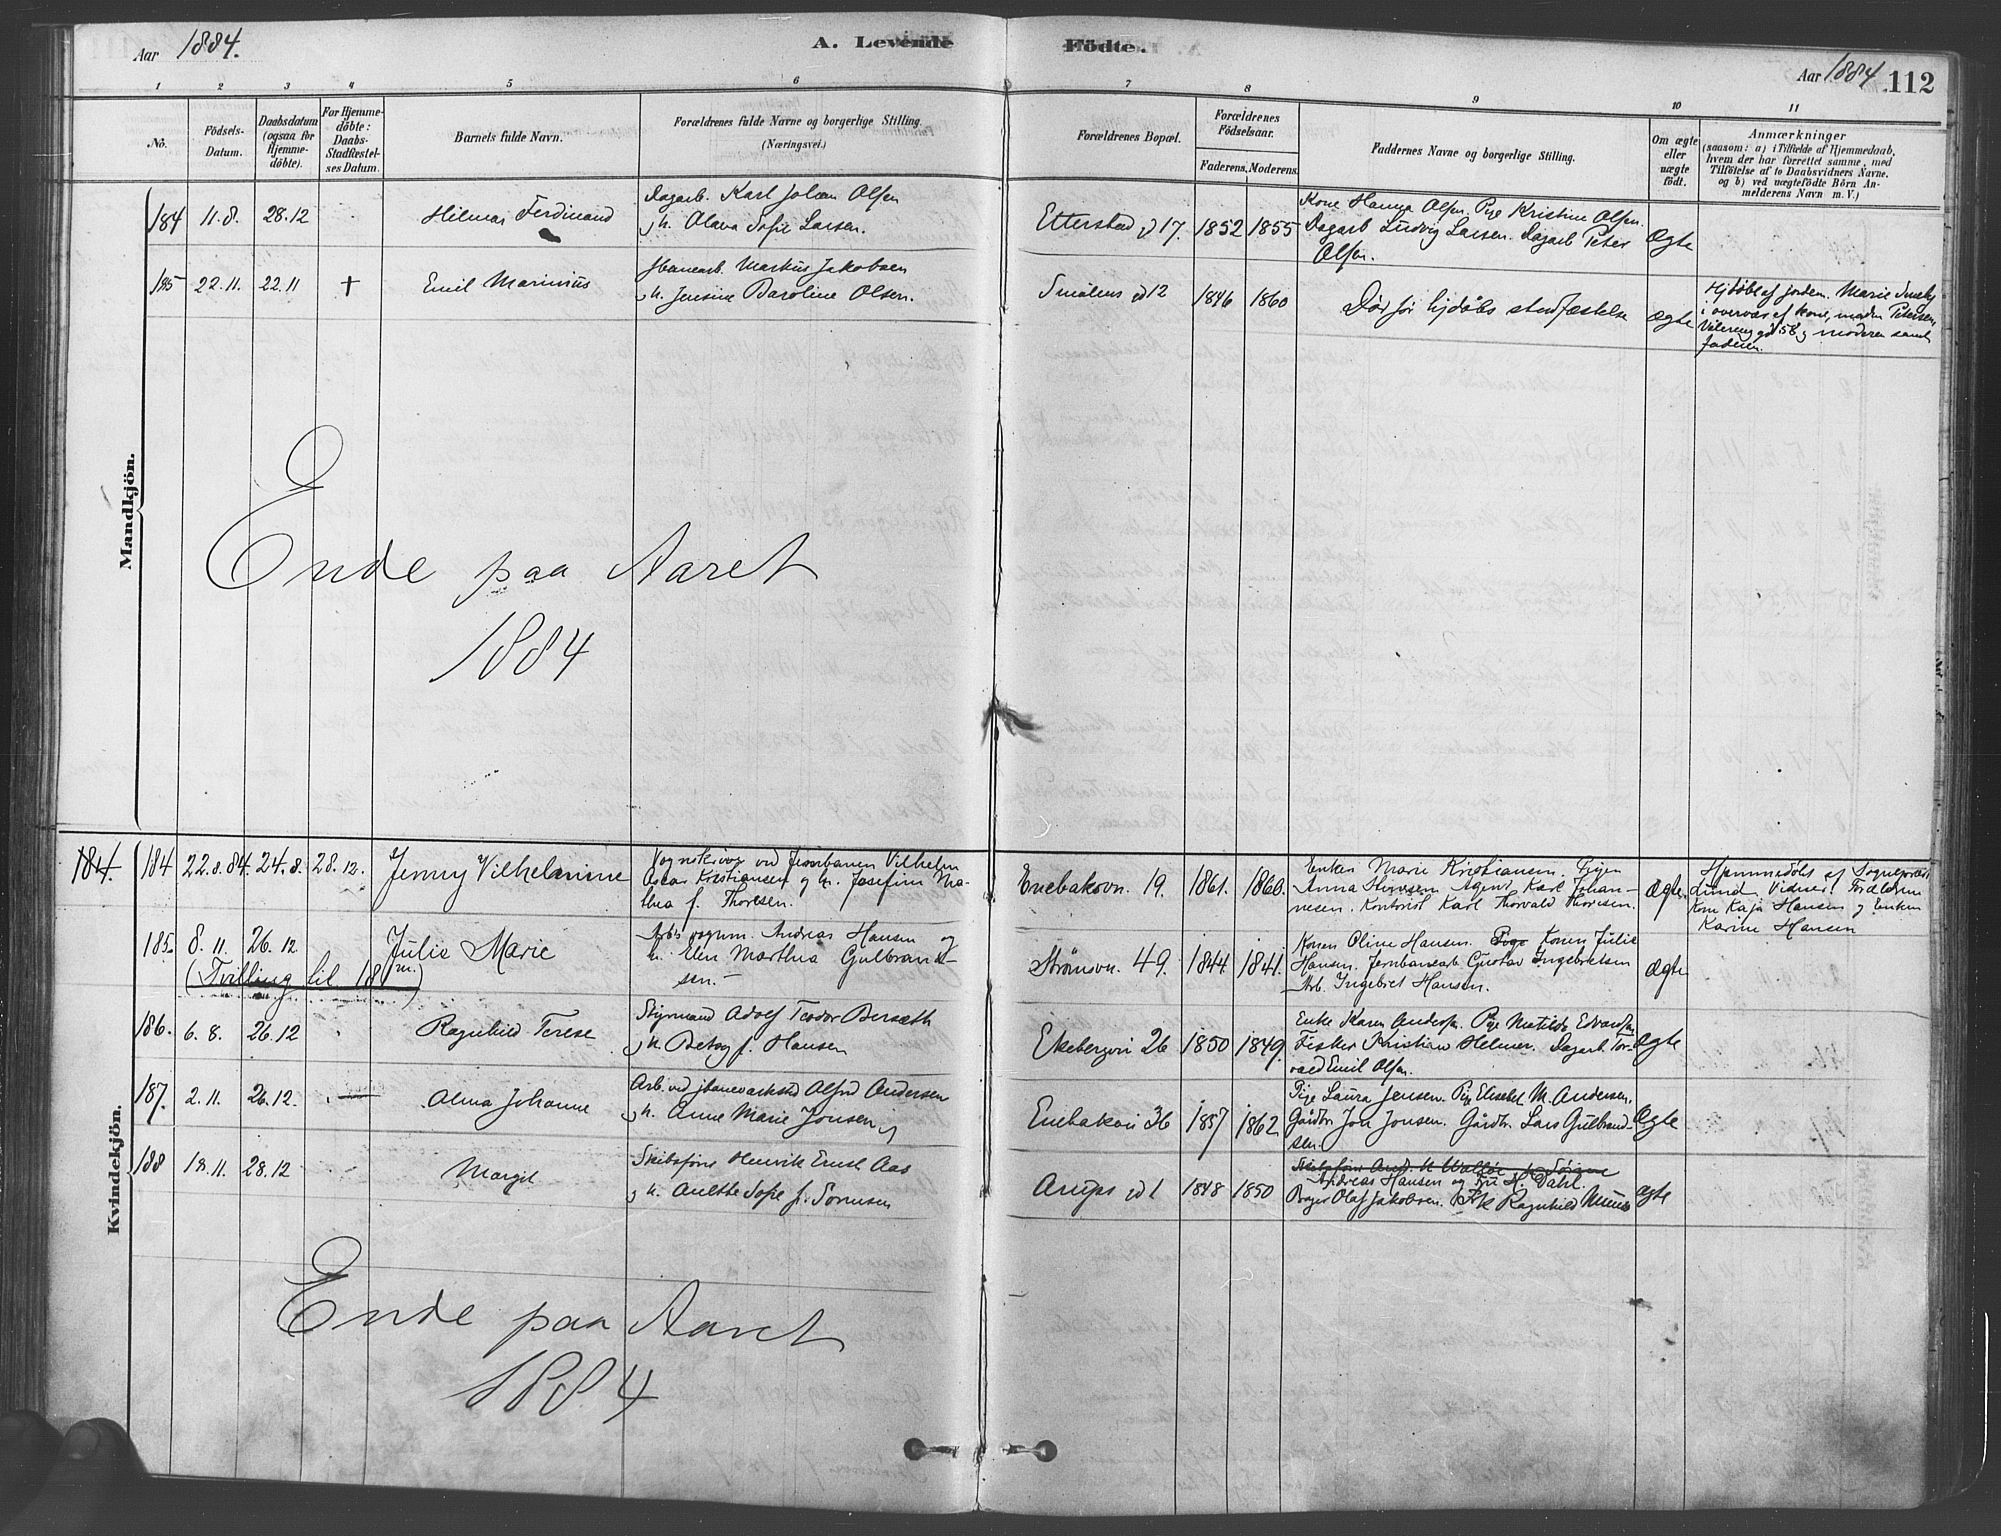 Aar 1884.
A. Levende Födte.
Aar 1884 112
1 2 3 4 5 6 7 8 9 10 11
No.
Födsels-
Datum.
Daabsdatum
(ogsaa for
Hjemme-
döbte).
For Hjemme-
döbte:
Daabs-
Stadfæstel-
ses Datum.
Barnets fulde Navn.
Forældrenes fulde Navne og borgerlige Stilling.
(Næringsvei.)
Forældrenes Bopæl.
Forældrenes
Födselsaar.
Faderens. Moderens.
Faddernes Navne og borgerlige Stilling.
Om ægte
eller
uægte
födt.
Anmærkninger
(saasom: a) i Tilfælde af Hjemmedaab,
hvem der har forrettet samme, med
Tilföielse af to Daabsvidners Navne.
og b) ved uægtefödte Börn An-
melderens Navn m. V.)
Mandkjön.
184 11.8. 28.12
Hilmar Ferdinand
Dagarb. Karl Johan Olsen
og h. Olava Sofie Larsen.
Etterstad gd 17. 1852 1855
Kone Olsen. Pige Kristine Olsen.
Dagarb Ludvig Larsen. Dagarb Peter
Olsen.
Ægte
185 22.11. 22.11 +
Emil Marinius
Jbanearb. Markus Jakobsen
og h. Jensine Baroline Olsen.
Smålens gd 12 1846 1860
Død før hjdøbs stadfæstelse
Ægte
Hjdøbt af jordem. Marie
i overvær af kone, madm Petersen
Vålereng gd 58, moderen samt
faderen.
Ende paa Aaret
1884
Kvindekjön.
184 184 22.8.84. 24.8. 28.12.
Jenny Vilhelmine
Vognskriver ved Jernbanen Vilhelm
Oscar Kristiansen og h. Josefine Ma-
thea f. Thoresen.
Enebakovn. 19. 1861. 1860.
Enken Marie Kristiansen. Pigen
Anna Agent Karl Johan-
nesen. Kontorist Karl Thorvald Thoresen.
Ægte.
Hjemmedøbt af Sognepræst
Lund. Vidner: Forældrene
Kone Kaja Hansen og Enken
Karine Hansen
185. 8.11. 26.12
(Tvilling til 18 m.)
Julie Marie
Arb. Andreas Hansen og
h. Elen Marthea Gulbrand-
sen.
Strømsvn. 49. 1844 1841.
Konen Oline Hansen. Konen Julie
Hansen. Jernbanearb Gustav Ingebretsen
Arb. Ingebret Hansen.
Ægte
186. 6.8. 26.12
Ragnhild Terese
Styrmand Adolf Teodor Berseth
og h. Betsy f. Hansen
Ekebergvei 26 1850 1849.
Enke Karen Andersen. Pige Matilde Edvardsen
Fisker Kristian Helmer. Dagarb. Tor-
vald Emil Olsen.
Ægte
187. 2.11. 26.12.
Alma Johanne
Arb. ved jbaneverksted Alfred Andersen
og h. Anne Marie Jonsen
Enebakvei 36 1857 1862
Pige Laura Jensen. Pige Elisabet M. Andersen.
Gårdbr Jon Jonsen. Gårdbr. Lars Gulbrand-
sen
Ægte
188 18.11. 28.12
Margit
Skibsfører Henrik Ernst Aas
og h. Anethe Sofie f. Sørensen
Arups gd 1 1848 1850
Skibsfører
Andreas Hansen og Fru H. Dahl.
Borger Olaf Jakobsen. Frk Ragnhild
Ægte
Ende paa Aaret
1884